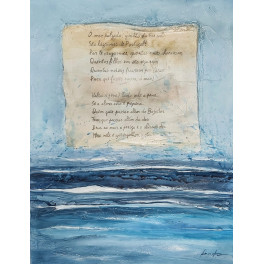 Ó mar salgado, quanto do teu sal
São lágrimas de Portugal!
Por te cruzarmos, quantas mães choraram,
Quantos filhos em vão rezaram!
Quantas noivas ficaram por casar
Para que fosses nosso, ó mar!
Valeu a pena? Tudo vale a pena
Se a alma não é pequena.
Quem quer passar além do Bojador
Tem que passar além da dor.
Deus ao mar o perigo e o abismo deu,
Mas nele é que espelhou o céu.